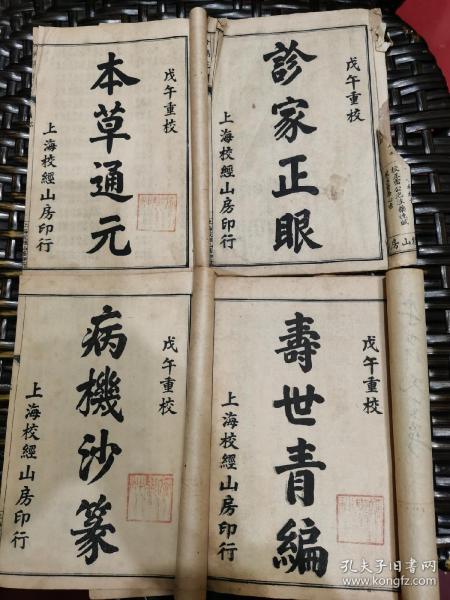 戊午重校
診家正眼
上海校經山房印行
戊午重校
本草通元
上海校經山房印行
戊午重校
壽世青編
上海校經山房印行
戊午重校
病機沙篆
上海校經山房印行
孔夫子旧书网
www.kongfz.com